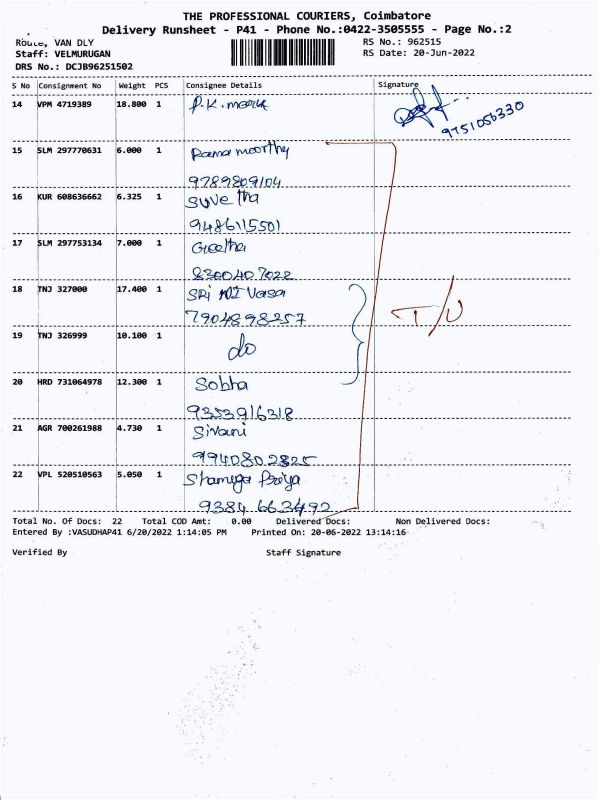 THE PROFESSIONAL COURIERS, Coimbatore
Delivery Runsheet - P41 - Phone No.:0422-3505555 - Page No.:2
Route, VAN DLY RS No.: 962515
Staff: VELMURUGAN RS Date: 20-Jun-2022
DRS No.: DCJB96251502
S No Consignment No Weight PCS Consignee Details Signature
14 VPM 4719389 18.800 1 P.K. 
9751056330
15 SLM 297770631 6.000 1 Rama moorthy
9789809104
16 KUR 608636662 6.325 1 Suvetha
9486115501
17 SLM 297753134 7.000 1 Geetha
8300407022
18 TNJ 327000 17.400 1 SRi Ni Vasa
7904898257 T/U
19 TNJ 326999 10.100 1 do
20 HRD 731064978 12.300 1 Sobha
9353916318
21 AGR 700261988 4.730 1 Sivani
9940802825
22 VPL 520510563 5.050 1 Shamuga Priya
9384663492
Total No. Of Docs: 22 Total COD Amt: 0.00 Delivered Docs: Non Delivered Docs:
Entered By :VASUDHAP41 6/20/2022 1:14:05 PM Printed On: 20-06-2022 13:14:16
Verified By Staff Signature